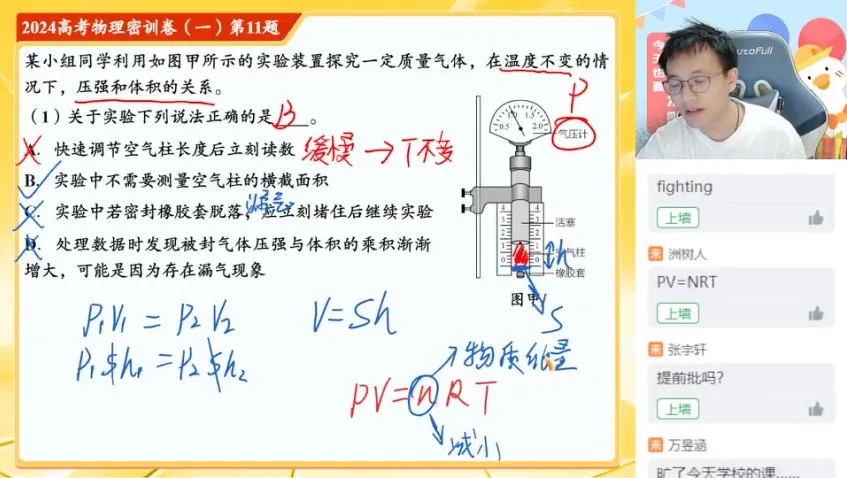 2024高考物理密训卷（一）第11题
某小组同学利用如图甲所示的实验装置探究一定质量气体，在温度不变的情
况下，压强和体积的关系。
（1）关于实验下列说法正确的是 B 。
A. 快速调节空气柱长度后立刻读数 缓慢 → T不变
B. 实验中不需要测量空气柱的横截面积
C. 实验中若密封橡胶套脱落，应立刻堵住后继续实验
漏气
D. 处理数据时发现被封气体压强与体积的乘积渐渐
增大，可能是因为存在漏气现象
P
0.5 1.0 1.5 2.0
气压计
4 4
3 3
2 2
1 1
0 0
活塞
气柱
橡胶套
h
S
图甲
P₁V₁ = P₂V₂
V=Sh
P₁Sh₁ = P₂Sh₂
物质的量
PV=nRT
减小
AutoFull
fighting
上墙
未 洲树人
PV=NRT
上墙
未 张宇轩
提前批吗?
上墙
未 万昱涵
旷了今天学校的课......